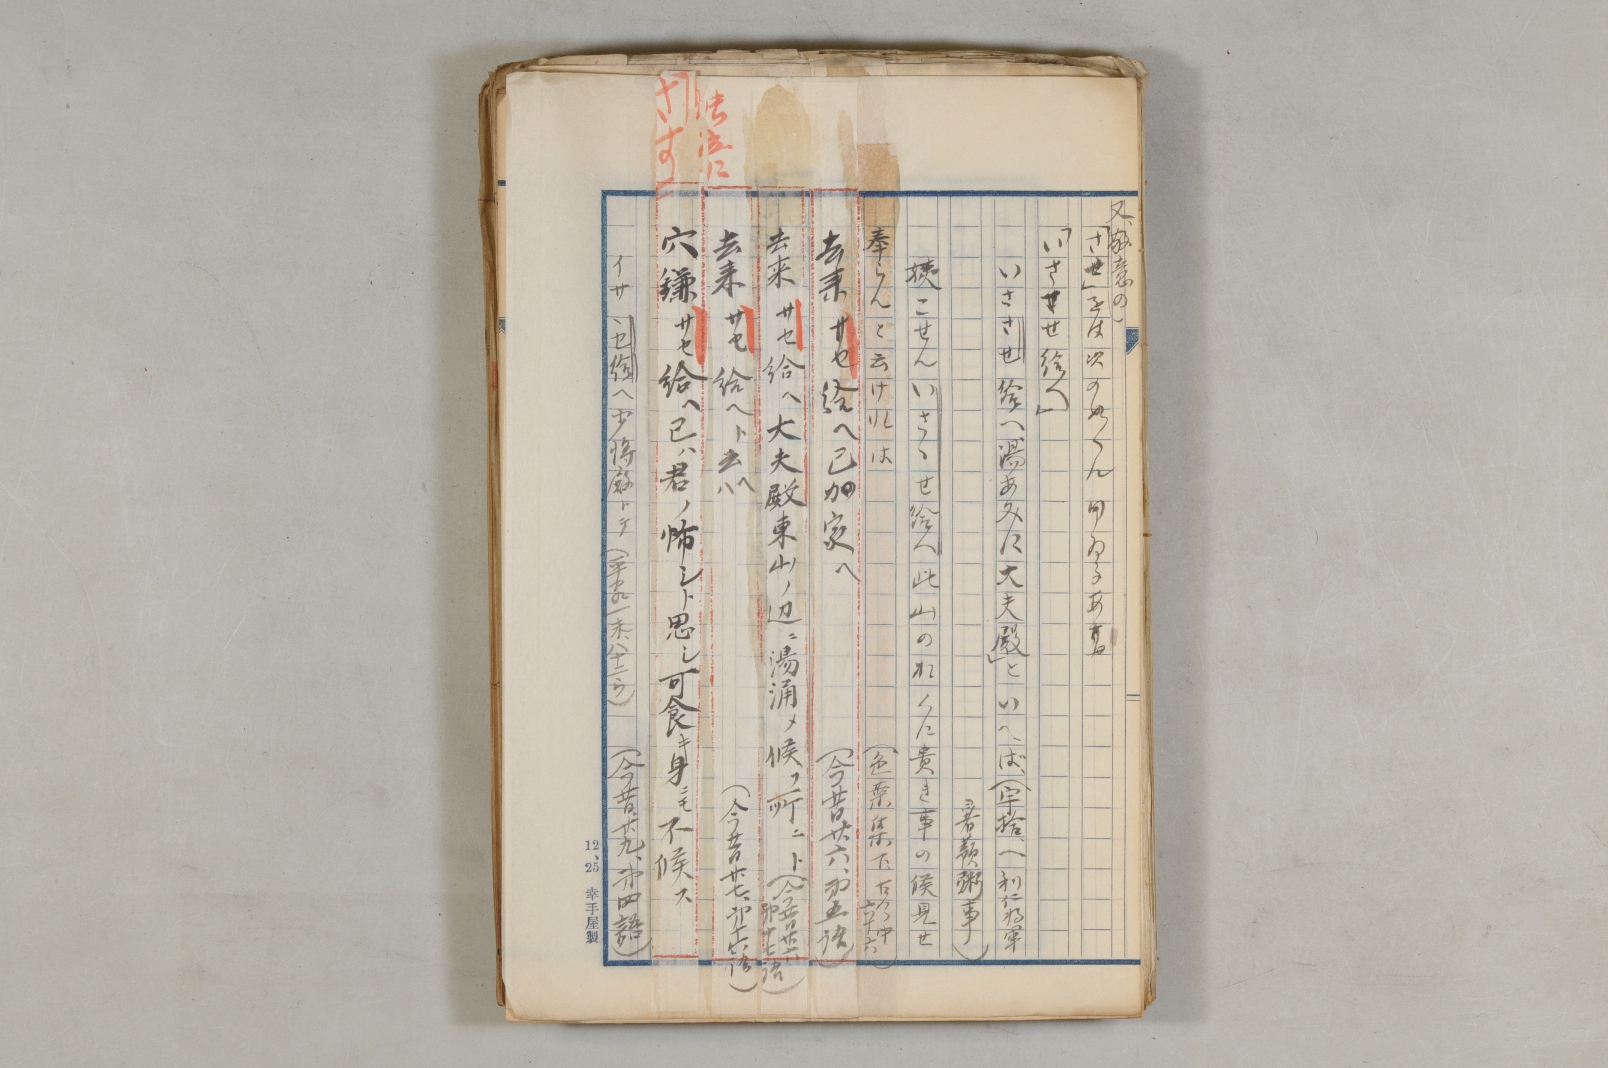 又、敬意の
「させ」をは次の如くん用ゐるあり
「いさせ給へ」
いささせ給へ湯あみに大夫殿」といへば、(宇拾、へ利仁将軍
署蕷粥事)
こせんいさゝせ給へ此山のおくに貴き事の候見せ
奉らんと云けれは
(色葉集下
去来サセ給ヘ己加家ヘ
(今昔廿六、第五語)
去来サセ給ヘ大夫殿東山ノ辺ニ湯涌〆候フ所ニト(今昔廿六、第廿七語)
去来サセ給ヘト云ヘハ
(今昔廿七、第十六語)
穴鎌サセ給ヘ己ハ君ノ怖シト思シ可食キ身ニモ不候ス
(今昔、廿九、第四語)
イサヽセ給ヘ少将殿トテ(平家一末、八十二ウ)
さす
法注に
12、25 幸手屋製